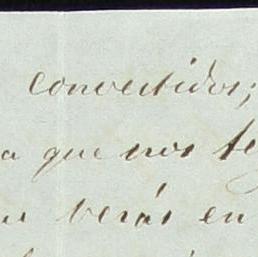 convertidos;
a que nos te
verás en